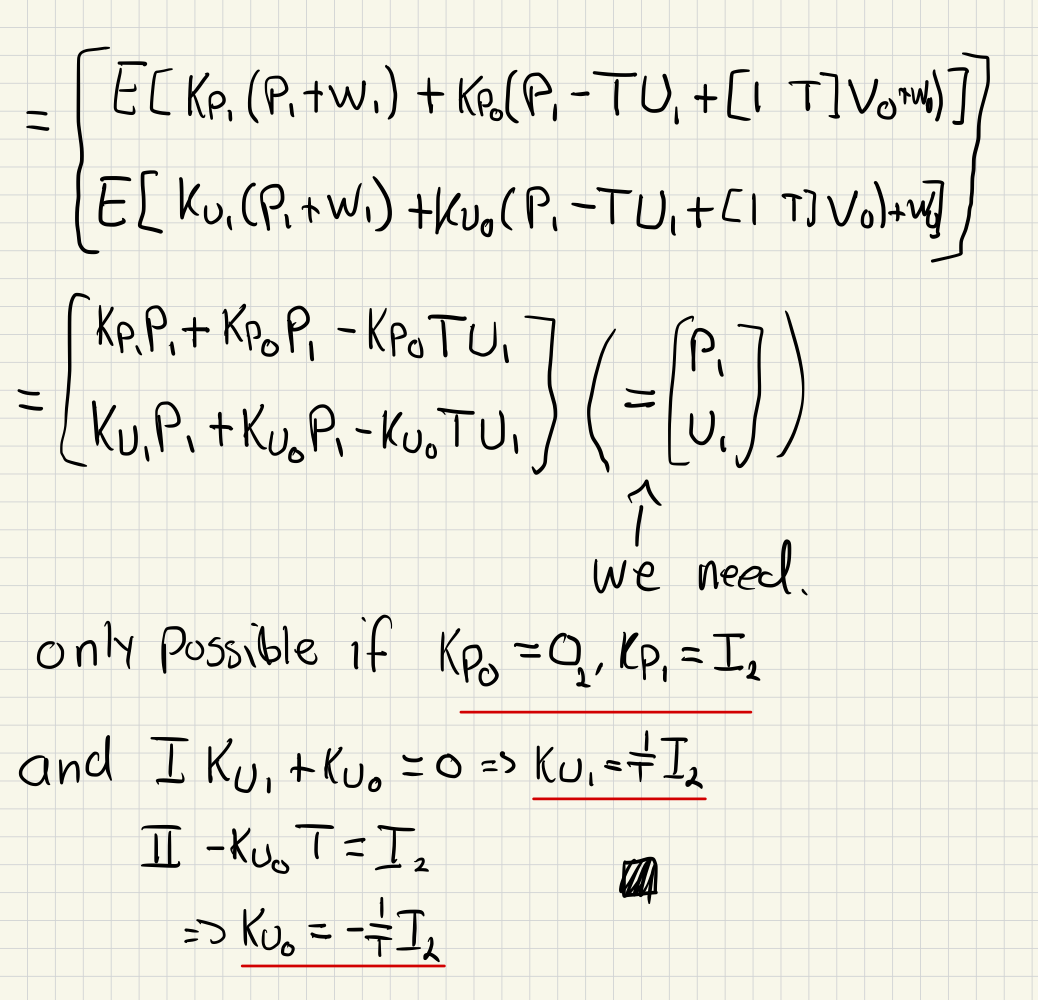 = [ E[ K_{P_1} (P_1 + W_1) + K_{P_0} (P_1 - T U_1 + [1 T] V_0 + W_0) ]
E[ K_{U_1} (P_1 + W_1) + K_{U_0} ( P_1 - T U_1 + [1 T] V_0) + W_0] ]
= [ K_{P_1} P_1 + K_{P_0} P_1 - K_{P_0} T U_1
K_{U_1} P_1 + K_{U_0} P_1 - K_{U_0} T U_1 ] ( = [ P_1 U_1 ] )
↑
we need.
only possible if K_{P_0} = 0_2, K_{P_1} = I_2
and I K_{U_1} + K_{U_0} = 0 => K_{U_1} = \frac{1}{T} I_2
II -K_{U_0} T = I_2
=> K_{U_0} = -\frac{1}{T} I_2